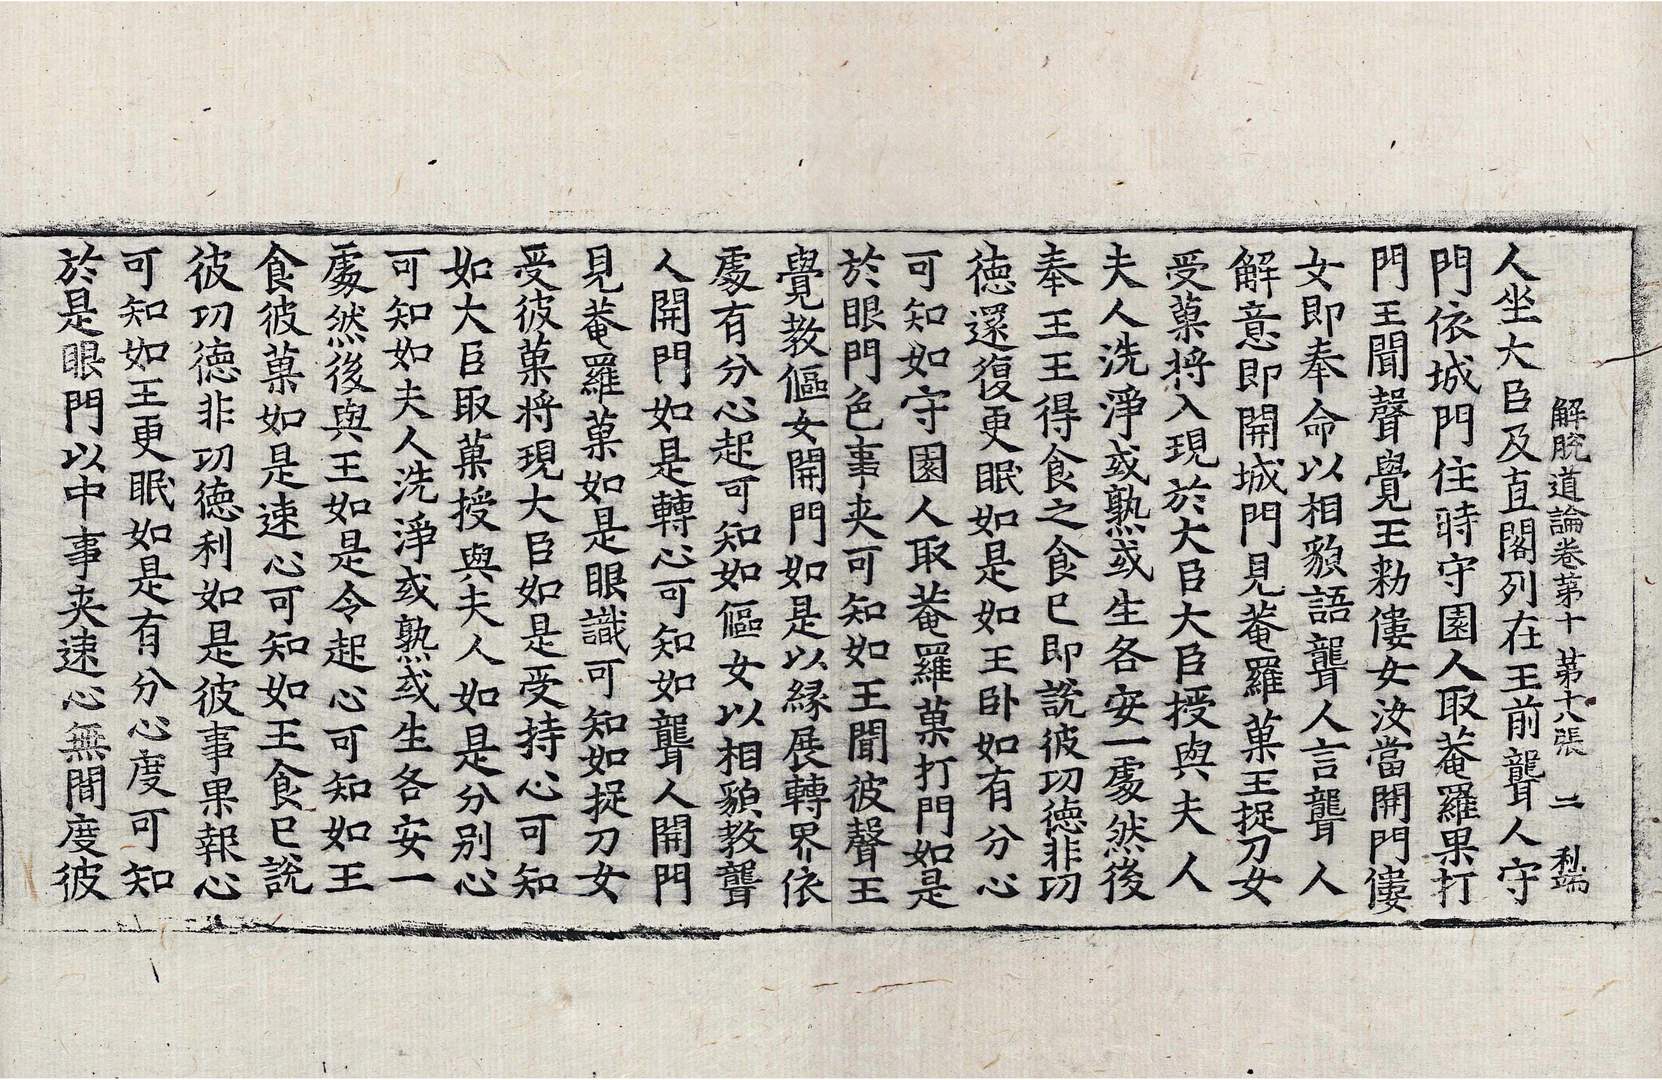 解脫道論卷第十 第十八張 二 利端
人坐大臣及直閣列在王前聾人守
門依城門住時守園人取菴羅果打
門王聞聲覺王勑僂女汝當開門僂
女即奉命以相貌語聾人言聾人
解意即開城門見菴羅菓王捉刀女
受菓將入現於大臣大臣授與夫人
夫人洗淨或熟或生各安一處然後
奉王王得食之食已即說彼功德非功
德還復更眠如是如王卧如有分心
可知如守園人取菴羅菓打門如是
於眼門色事夾可知如王聞彼聲王
覺教傴女開門如是以縁展轉界依
處有分心起可知如傴女以相貌教聾
人開門如是轉心可知如聾人開門
見菴羅菓如是眼識可知如捉刀女
受彼菓将現大臣如是受持心可知
如大臣取菓授與夫人如是分別心
可知如夫人洗淨或熟或生各安一
處然後與王如是令起心可知如王
食彼菓如是速心可知如王食已說
彼功德非功德利如是彼事果報心
可知如王更眠如是有分心度可知
於是眼門以中事夾速心無間度彼